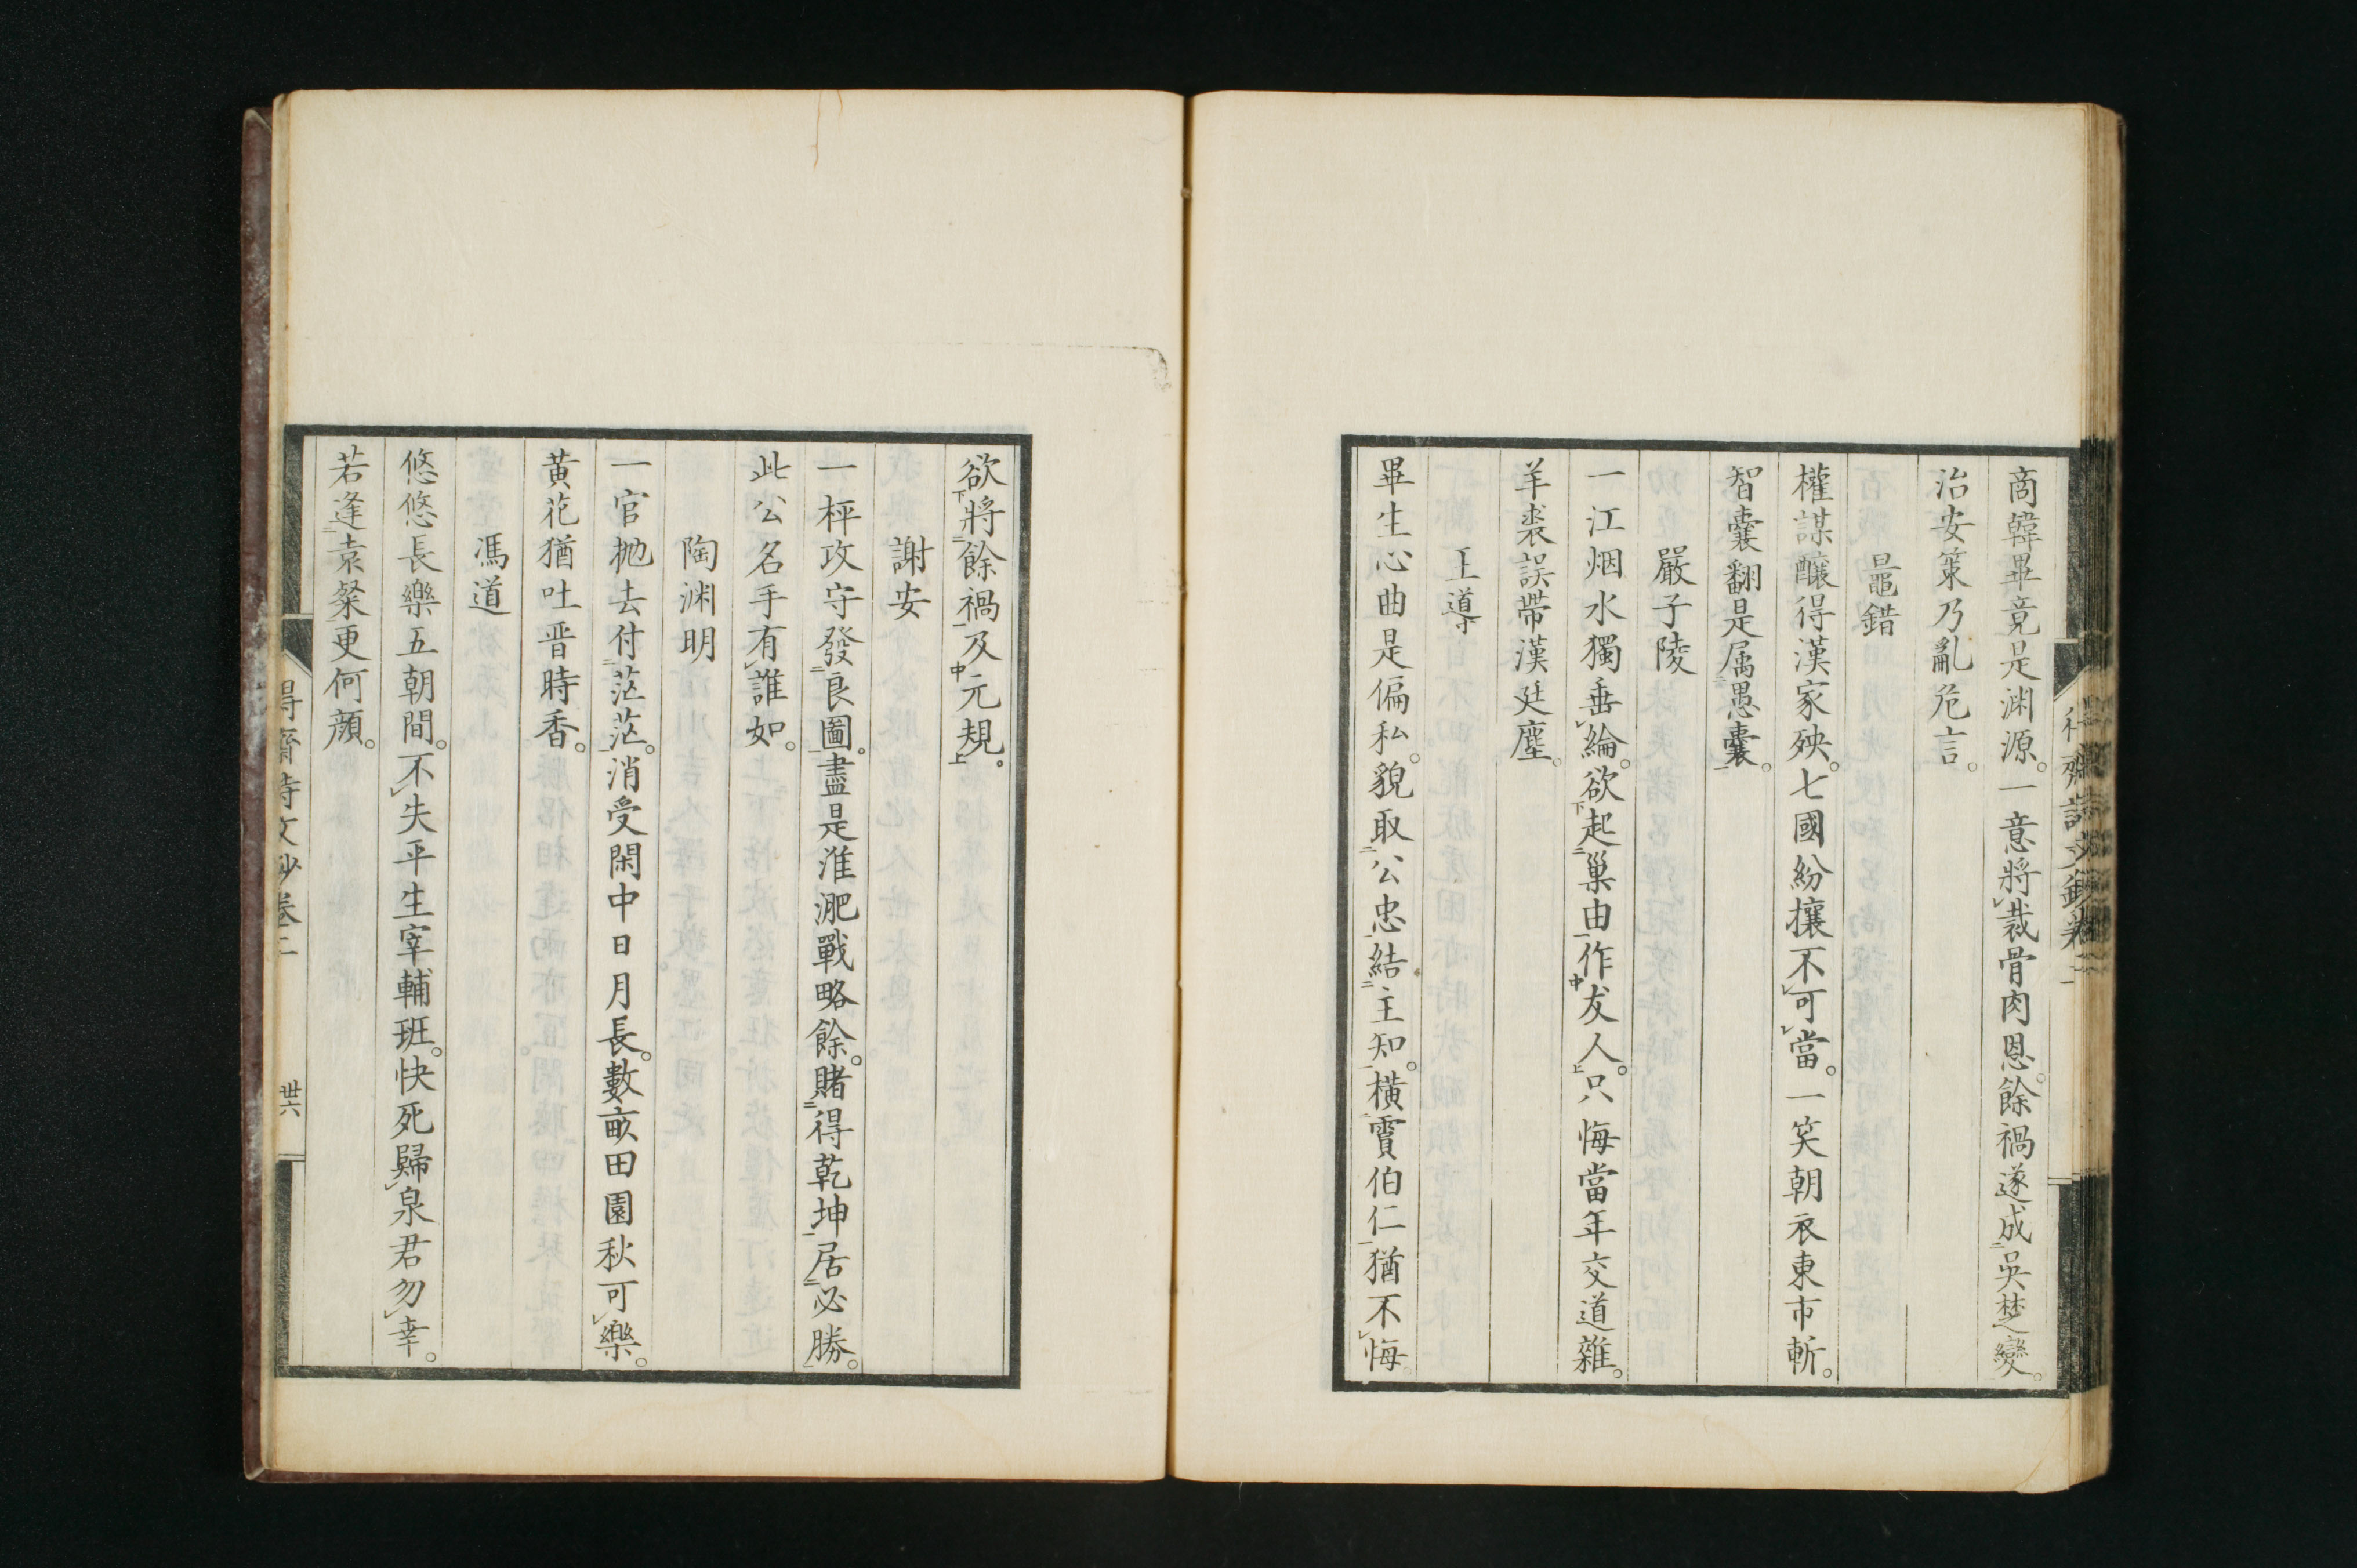 商韓畢竟是渊源。一意將裁骨肉恩。餘禍遂成吳楚變。
治安策乃亂危言。
鼂錯
權謀釀得漢家殃。七國紛攘不可當。一笑朝衣東市斬。
智囊翻是属愚囊。
嚴子陵
一江烟水獨垂綸。欲起巢由作友人。只悔當年交道雜。
羊裘誤帶漢廷塵。
王導
畢生心曲是偏私。貌取公忠結主知。橫賈伯仁猶不悔。
欲將餘禍及元規。
謝安
一枰攻守發良圖。盡是淮淝戰略餘。賭得乾坤居必勝。
此公名手有誰如。
陶渊明
一官抛去付茫茫。消受閑中日月長。數畝田園秋可樂。
黄花猶吐晋時香。
馮道
悠悠長樂五朝間。不失平生宰輔班。快死歸泉君勿幸。
若逢袁粲更何顔。
得齋詩文鈔卷二
卅六